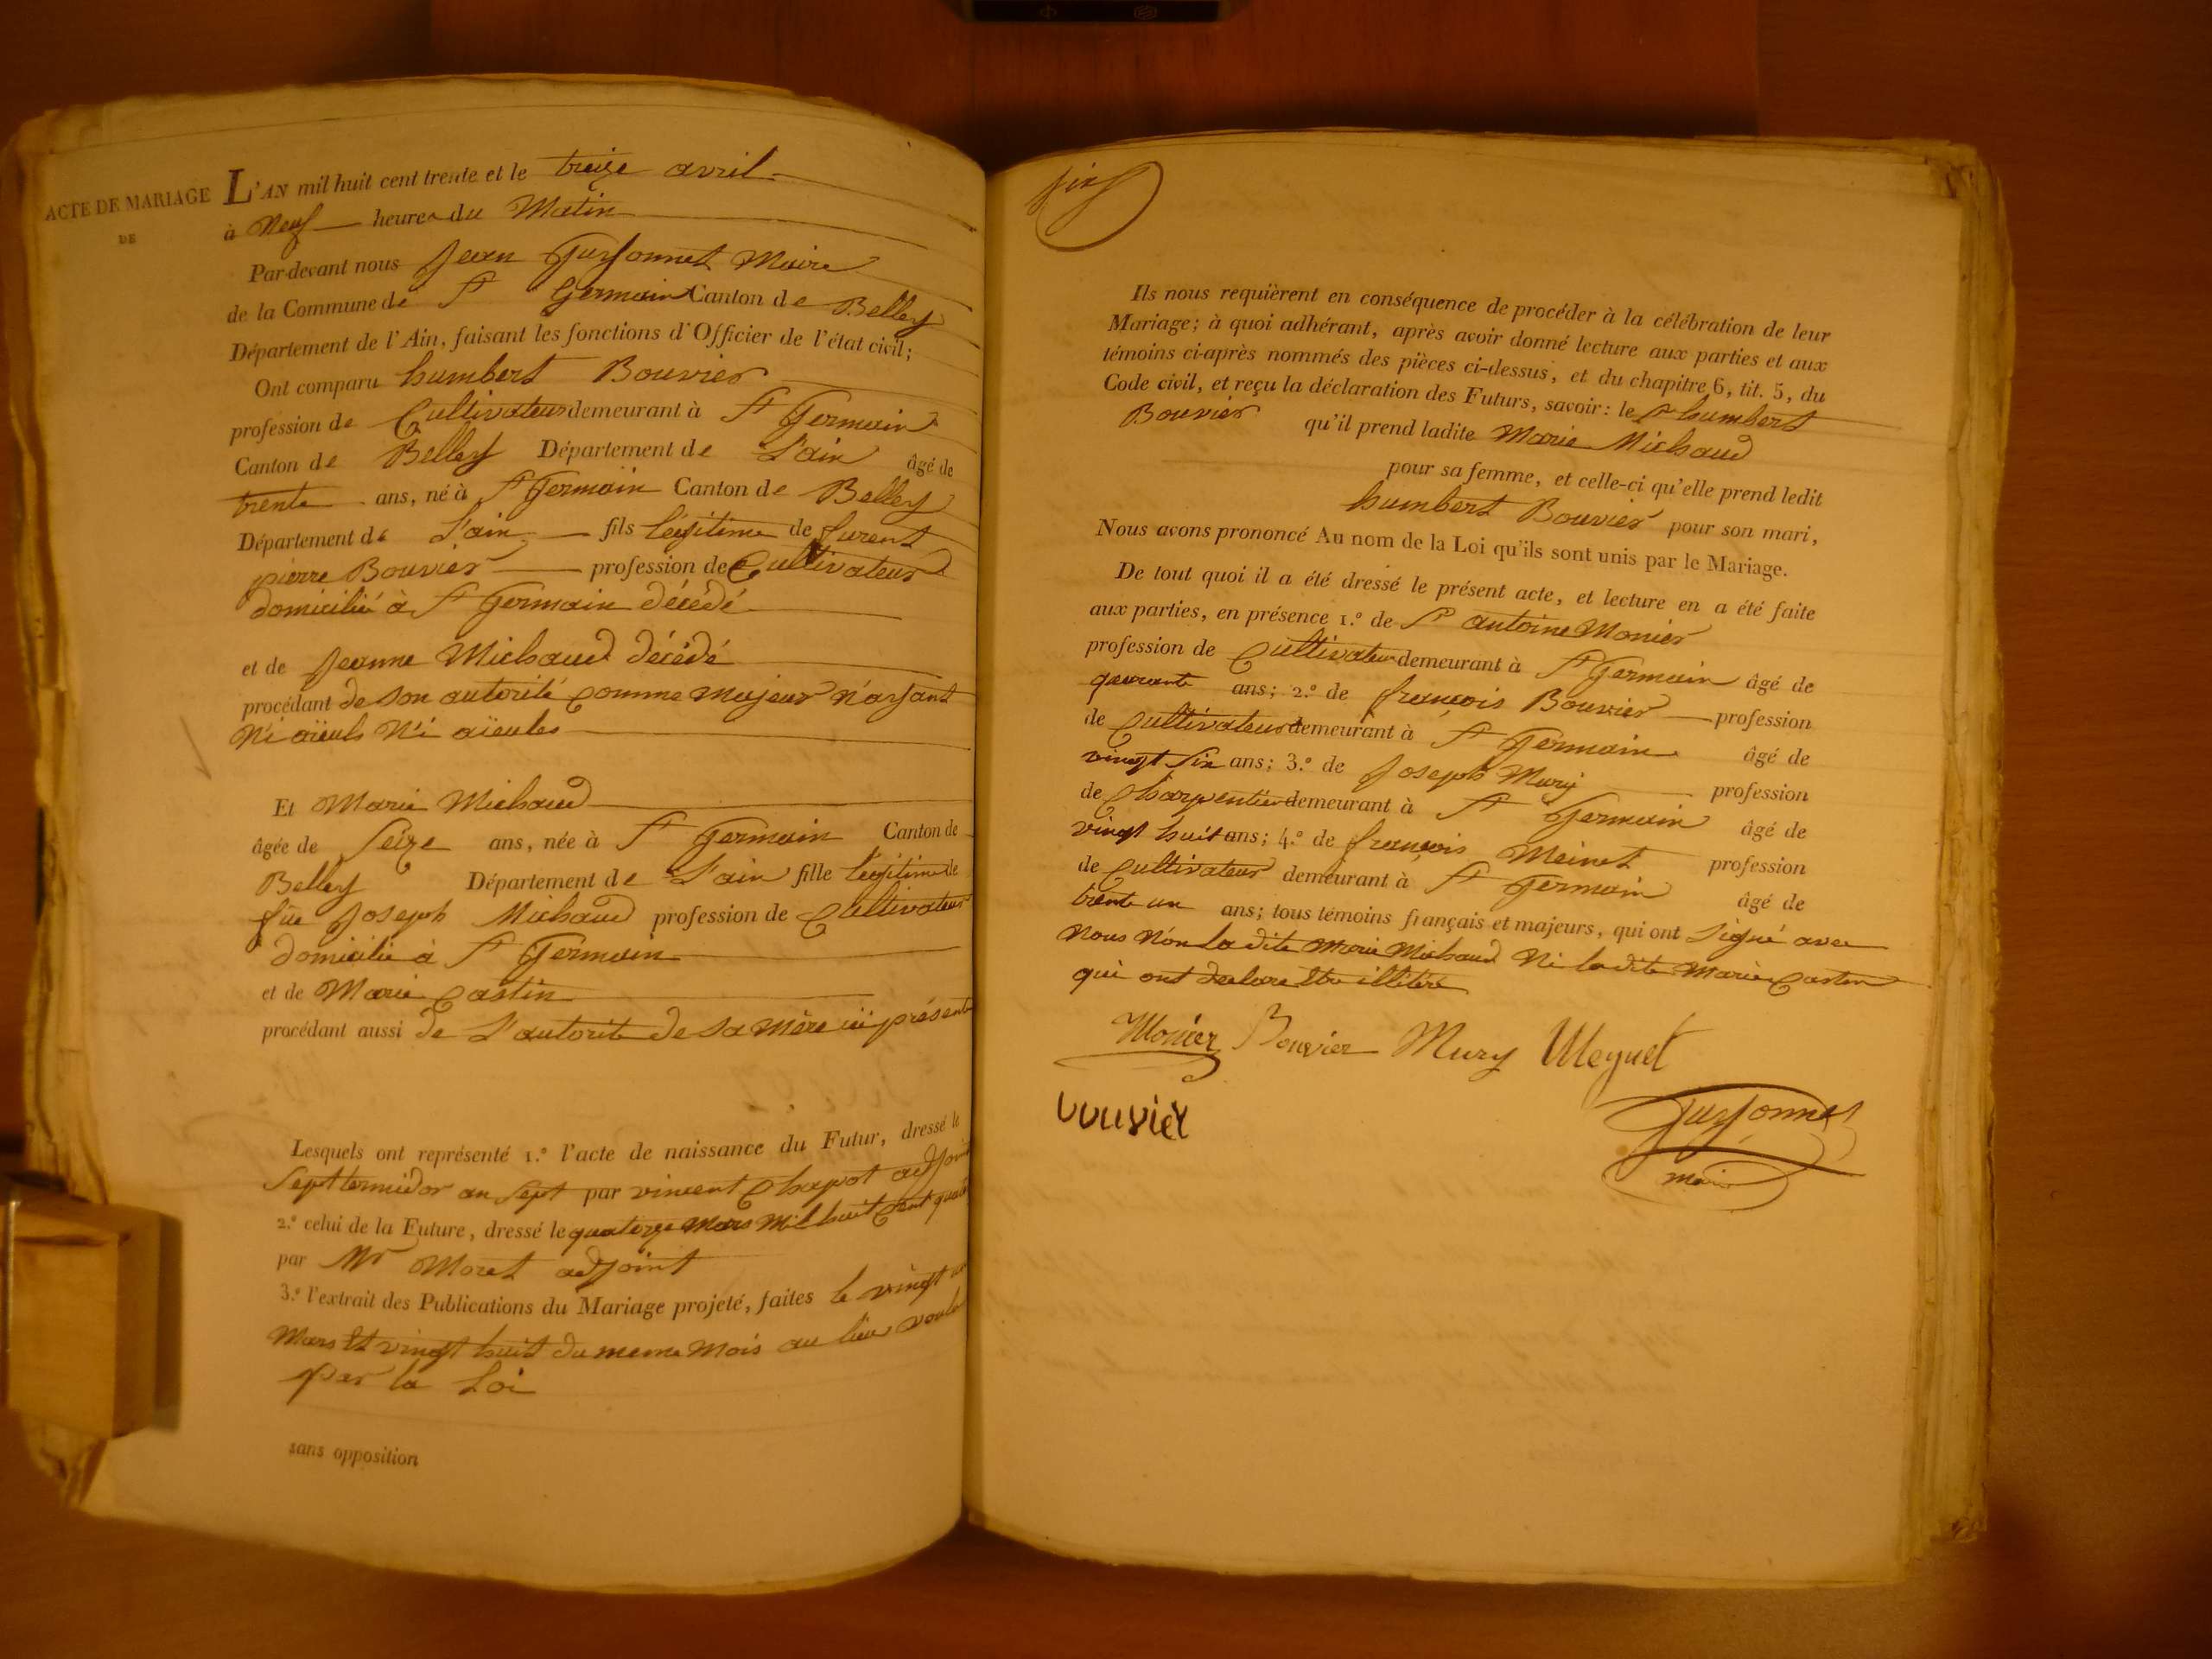 ACTE DE MARIAGE
DE
L'AN mil huit cent trente et le treize avril
à Neuf heures du Matin
Par-devant nous Jean Guyonnet Maire
de la Commune de St Germain Canton de Belley
Département de l'Ain, faisant les fonctions d'Officier de l'état civil;
Ont comparu humbert Bouvier
profession de Cultivateur demeurant à St Germain
Canton de Belley Département de L'ain âgé de
trente ans, né à St Germain Canton de Belley
Département de L'ain fils légitime de
pierre Bouvier profession de Cultivateur
domicilié à St Germain décédé
et de Jeanne Michaud décédé
procédant de son autorité comme majeur n'ayant
Ni aïeuls Ni aïeules
Et Marie Michaud
âgée de Seize ans, née à St Germain Canton de
Belley Département de L'ain fille légitime de
Joseph Michaud profession de Cultivateur
domicilié à St Germain
et de Marie Castin
procédant aussi de L'autorité de sa mère ici présente
Lesquels ont représenté 1.° l'acte de naissance du Futur, dressé le
Sept termidor an Sept par vincent Chapot adjoint
2.° celui de la Future, dressé le quatorze Mars Mil huit Cent
par Mr Moret adjoint
3.° l'extrait des Publications du Mariage projeté, faites le vingt un
Mars Et vingt huit du meme Mois au lieu voulu
par la Loi
sans opposition
six
Ils nous requièrent en conséquence de procéder à la célébration de leur
Mariage; à quoi adhérant, après avoir donné lecture aux parties et aux
témoins ci-après nommés des pièces ci-dessus, et du chapitre 6, tit. 5, du
Code civil, et reçu la déclaration des Futurs, savoir: le Sr humbert
Bouvier qu'il prend ladite Marie Michaud
pour sa femme, et celle-ci qu'elle prend ledit
humbert Bouvier pour son mari,
Nous avons prononcé Au nom de la Loi qu'ils sont unis par le Mariage.
De tout quoi il a été dressé le présent acte, et lecture en a été faite
aux parties, en présence 1.° de Sr antoine Monier
profession de Cultivateur demeurant à St Germain âgé de
quarante ans; 2.° de françois Bouvier profession
de Cultivateur demeurant à St Germain âgé de
vingt Six ans; 3.° de Joseph Mury profession
de Charpentier demeurant à St Germain âgé de
vingt huit ans; 4.° de françois Meinet profession
de Cultivateur demeurant à St Germain âgé de
trente un ans; tous témoins français et majeurs, qui ont Signé avec
Nous Non La dite Marie Michaud Ni la dite Marie Castin
qui ont declare Etre illitéré
Monier Bouvier Mury Meynet
bouvier
Guyonnet
maire